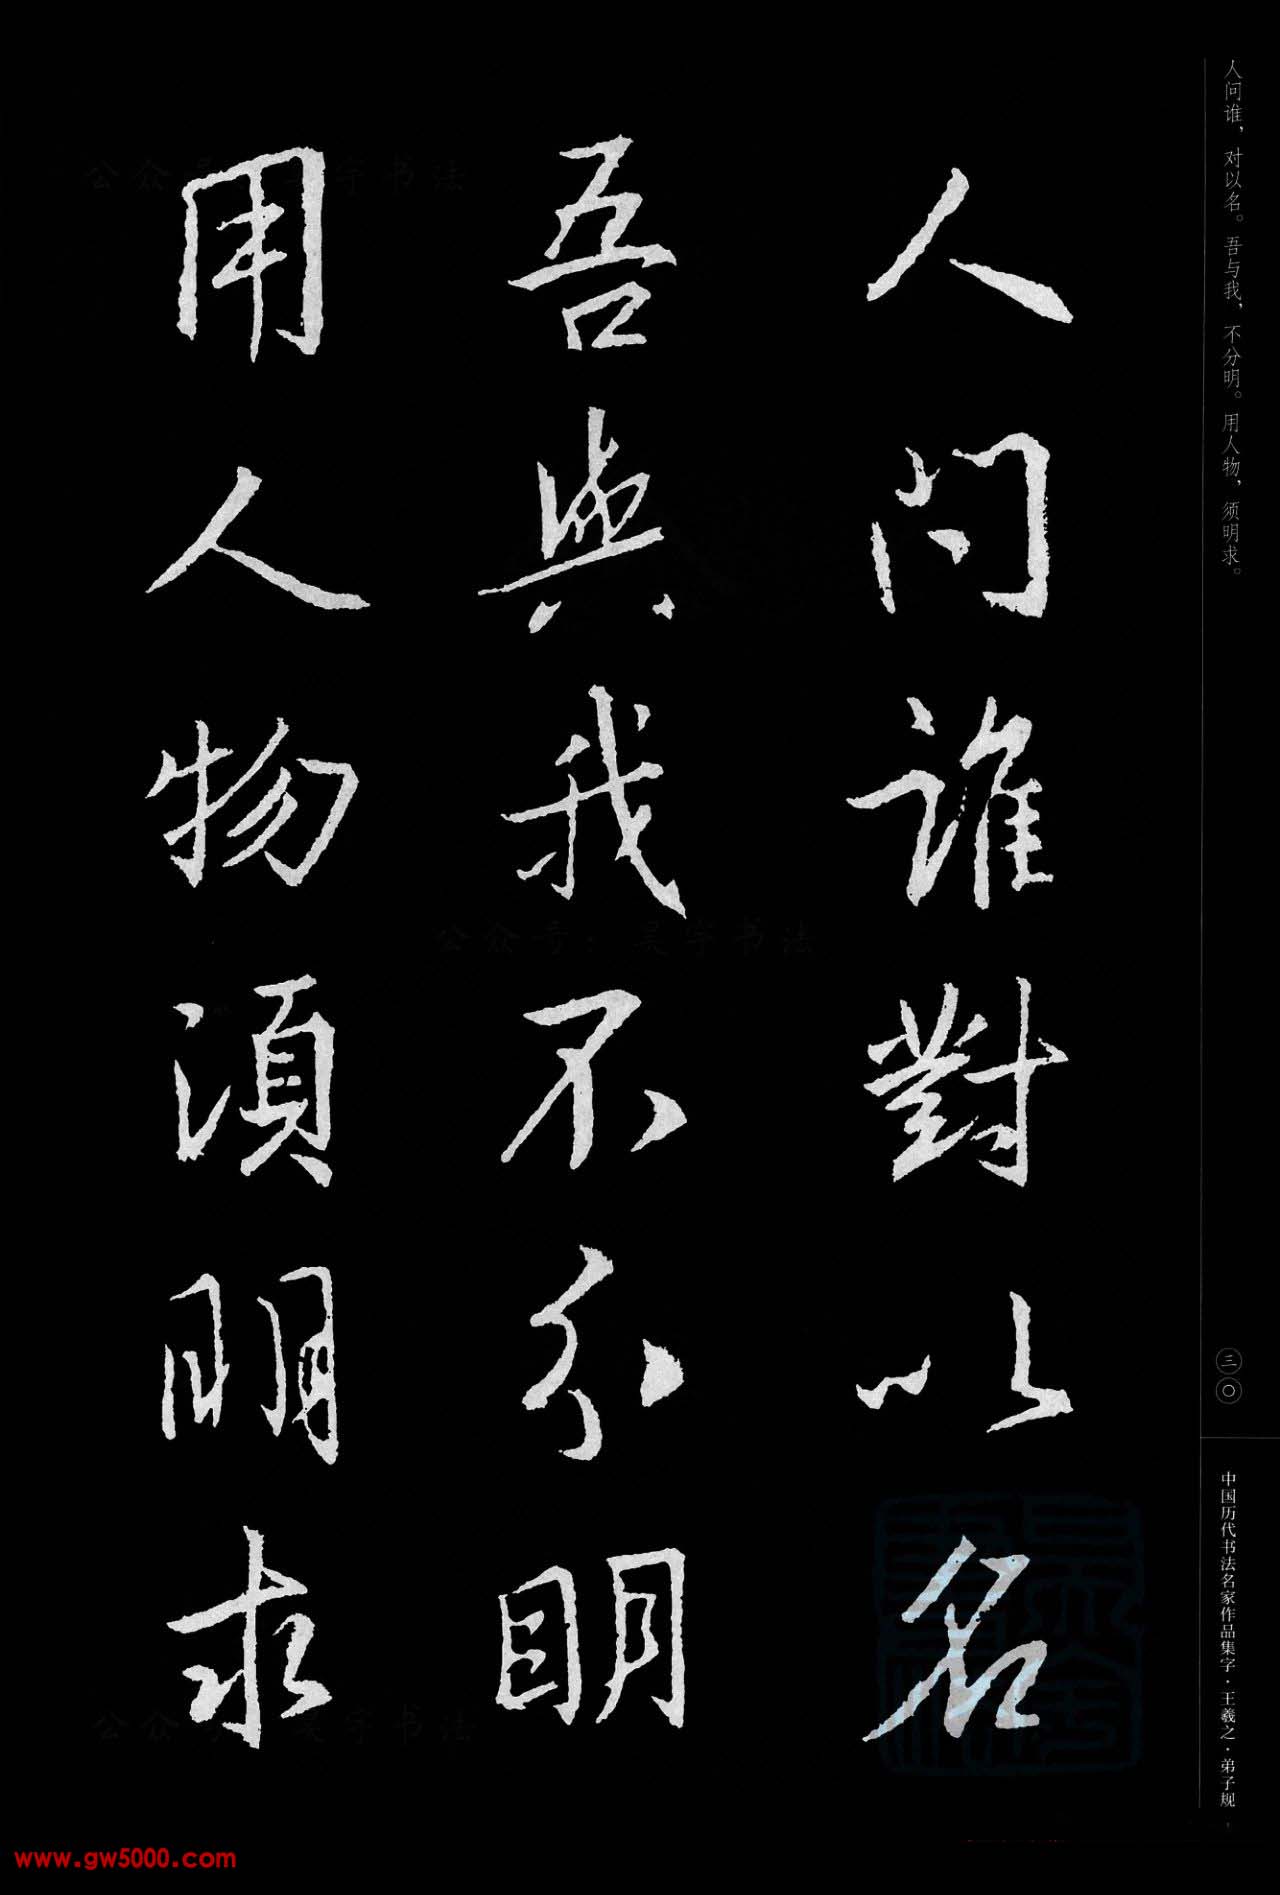 人問誰對以名
吾與我不分明
用人物須明求
人问谁，对以名。吾与我，不分明。用人物，须明求。
三〇
中国历代书法名家作品集字·王羲之·弟子规
公众号：昊宇书法
www.gw5000.com